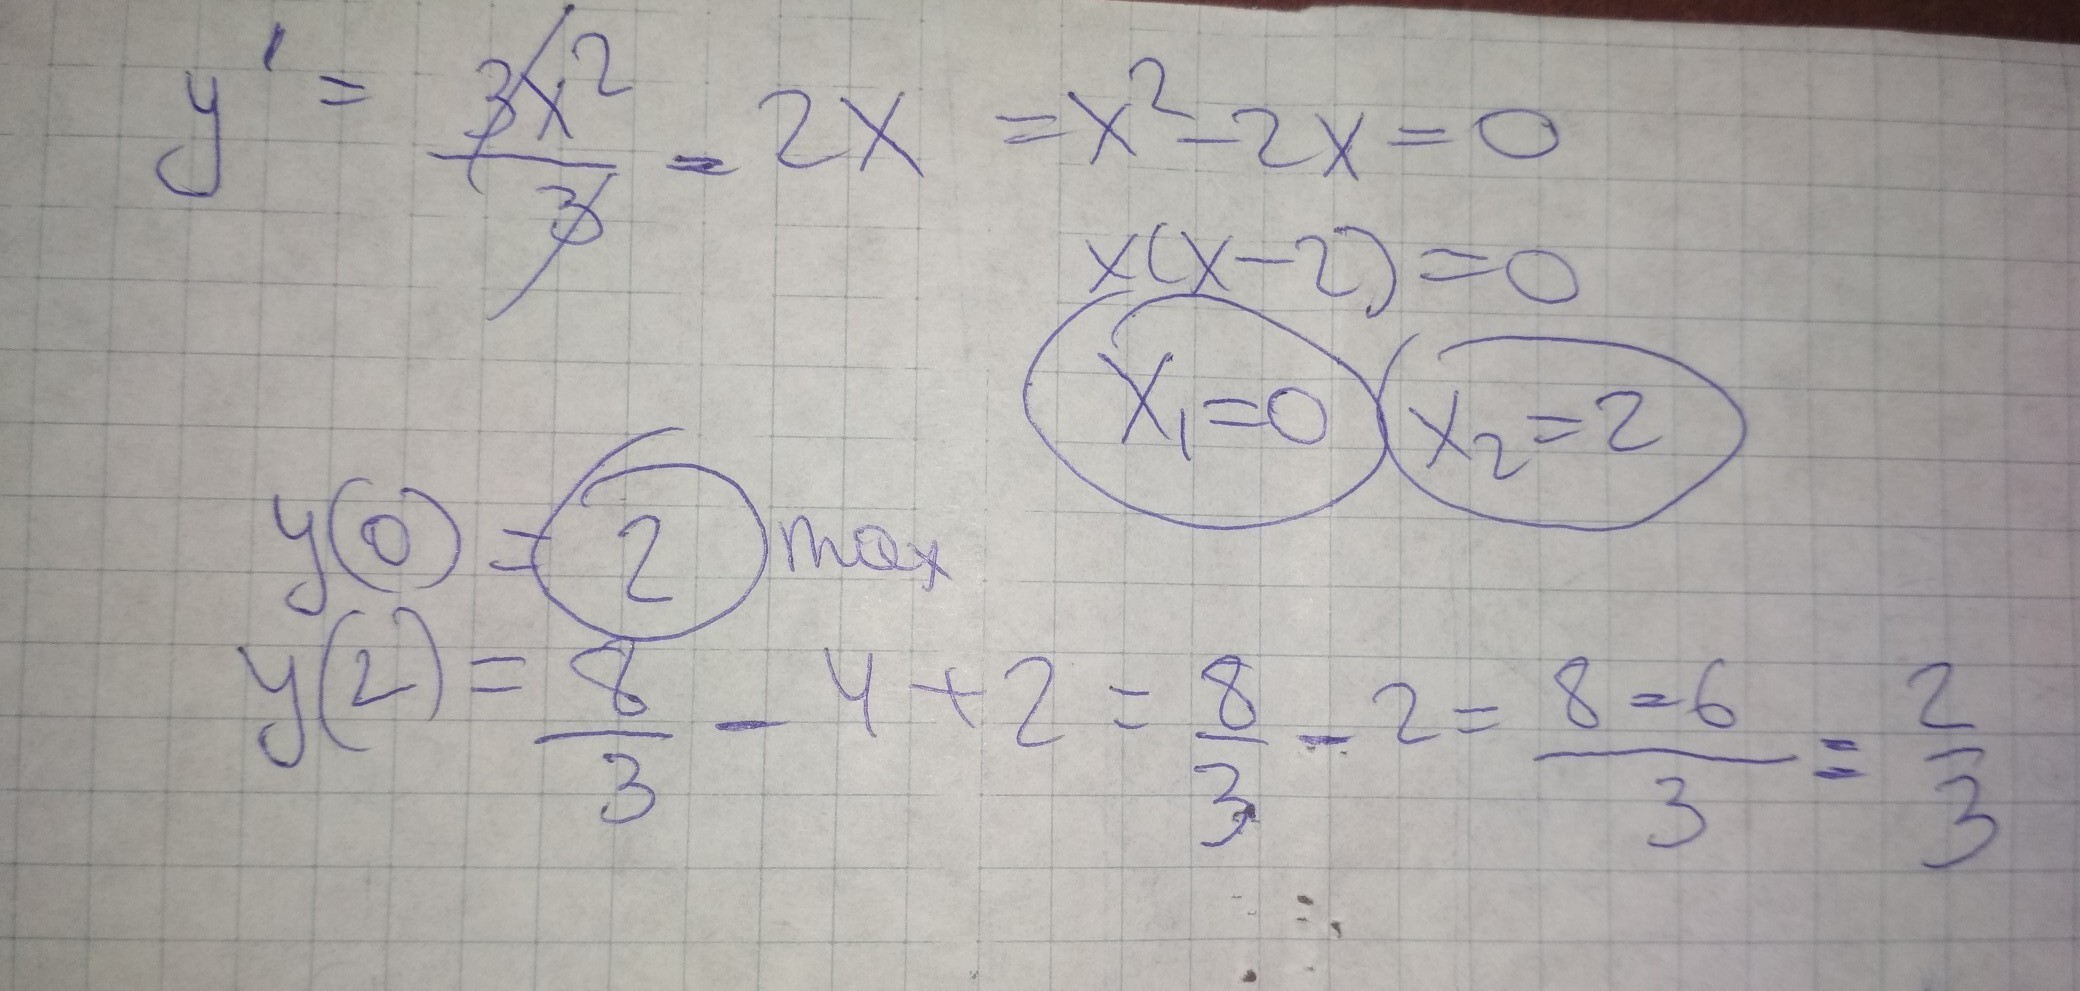 y' = 3x²/3 - 2x = x² - 2x = 0
x(x-2) = 0
x₁ = 0 x₂ = 2
y(0) = 2 max
y(2) = 8/3 - 4 + 2 = 8/3 - 2 = (8-6)/3 = 2/3